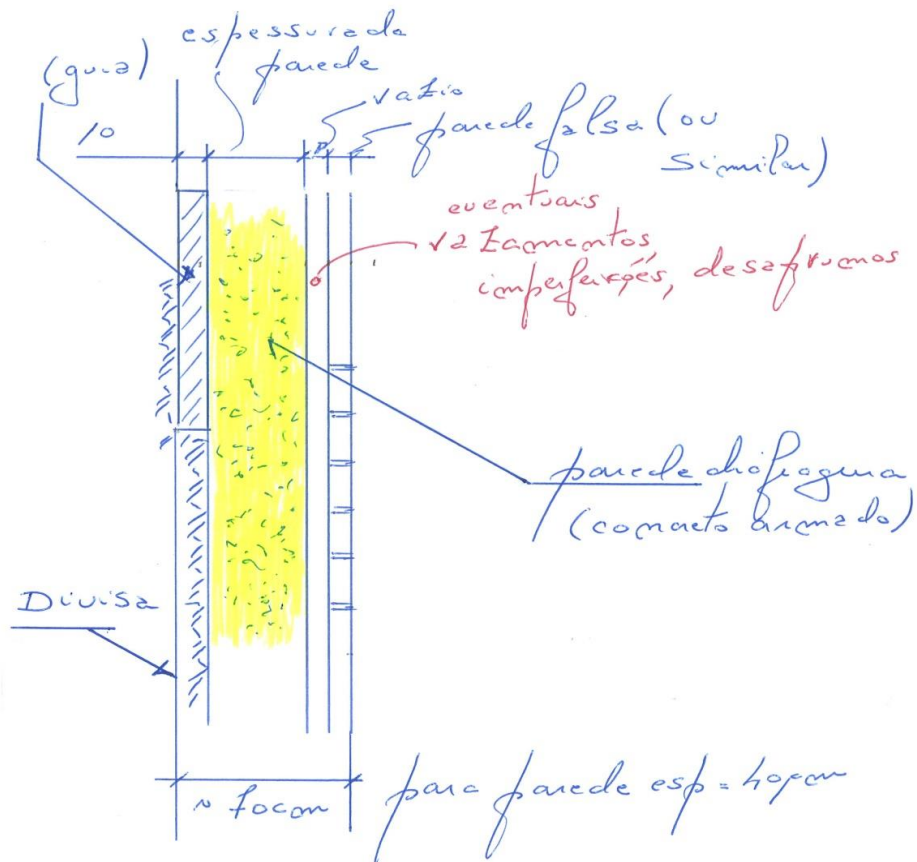 espessura da
parede
(guia)
10
vazio
parede falsa (ou
similar)
eventuais
vazamentos
imperfeições, desaprumos
parede diafragma
(concreto armado)
Divisa
~ 70cm
para parede esp = 40cm